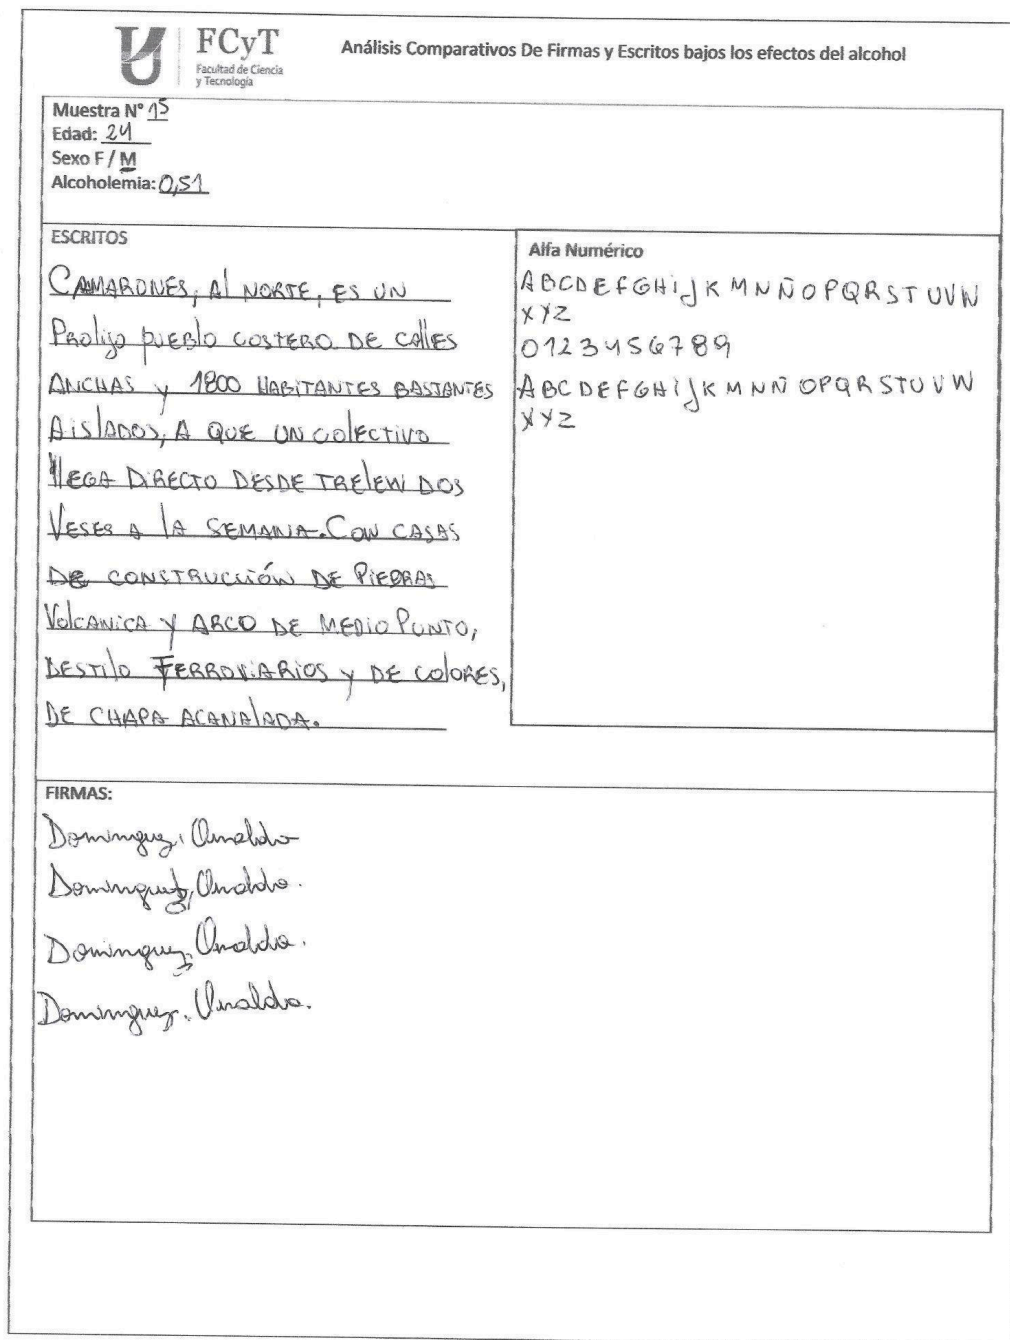 FCyT
Facultad de Ciencia
y Tecnología
Análisis Comparativos De Firmas y Escritos bajos los efectos del alcohol
Muestra N° 15
Edad: 24
Sexo F / M
Alcoholemia: 0,51
ESCRITOS
CAMARONES, Al NORTE, ES UN
Prolijo PUEBlo COSTERO DE CAllES
ANCHAS y 1800 HABITANTES BASTANTES
AislADOS, A QUE UN COlECTIVO
llEGA DiRECTO DESDE TRElEW DOS
VESES A lA SEMANA. CON CASAS
DE CONSTRUCCIÓN DE PIEDRAS
VolCANiCA Y ARCO DE MEDIO PUNTO,
DESTIlO FERROViARiOS y DE COlORES,
DE CHAPA ACANAlADA.
Alfa Numérico
ABCDEFGHiJKMNÑOPQRSTUVW
XYZ
0123456789
ABCDEFGHiJKMNÑOPQRSTUVW
XYZ
FIRMAS:
Dominguez, Arnaldo
Dominguez, Arnaldo.
Dominguez, Arnaldo.
Dominguez, Arnaldo.